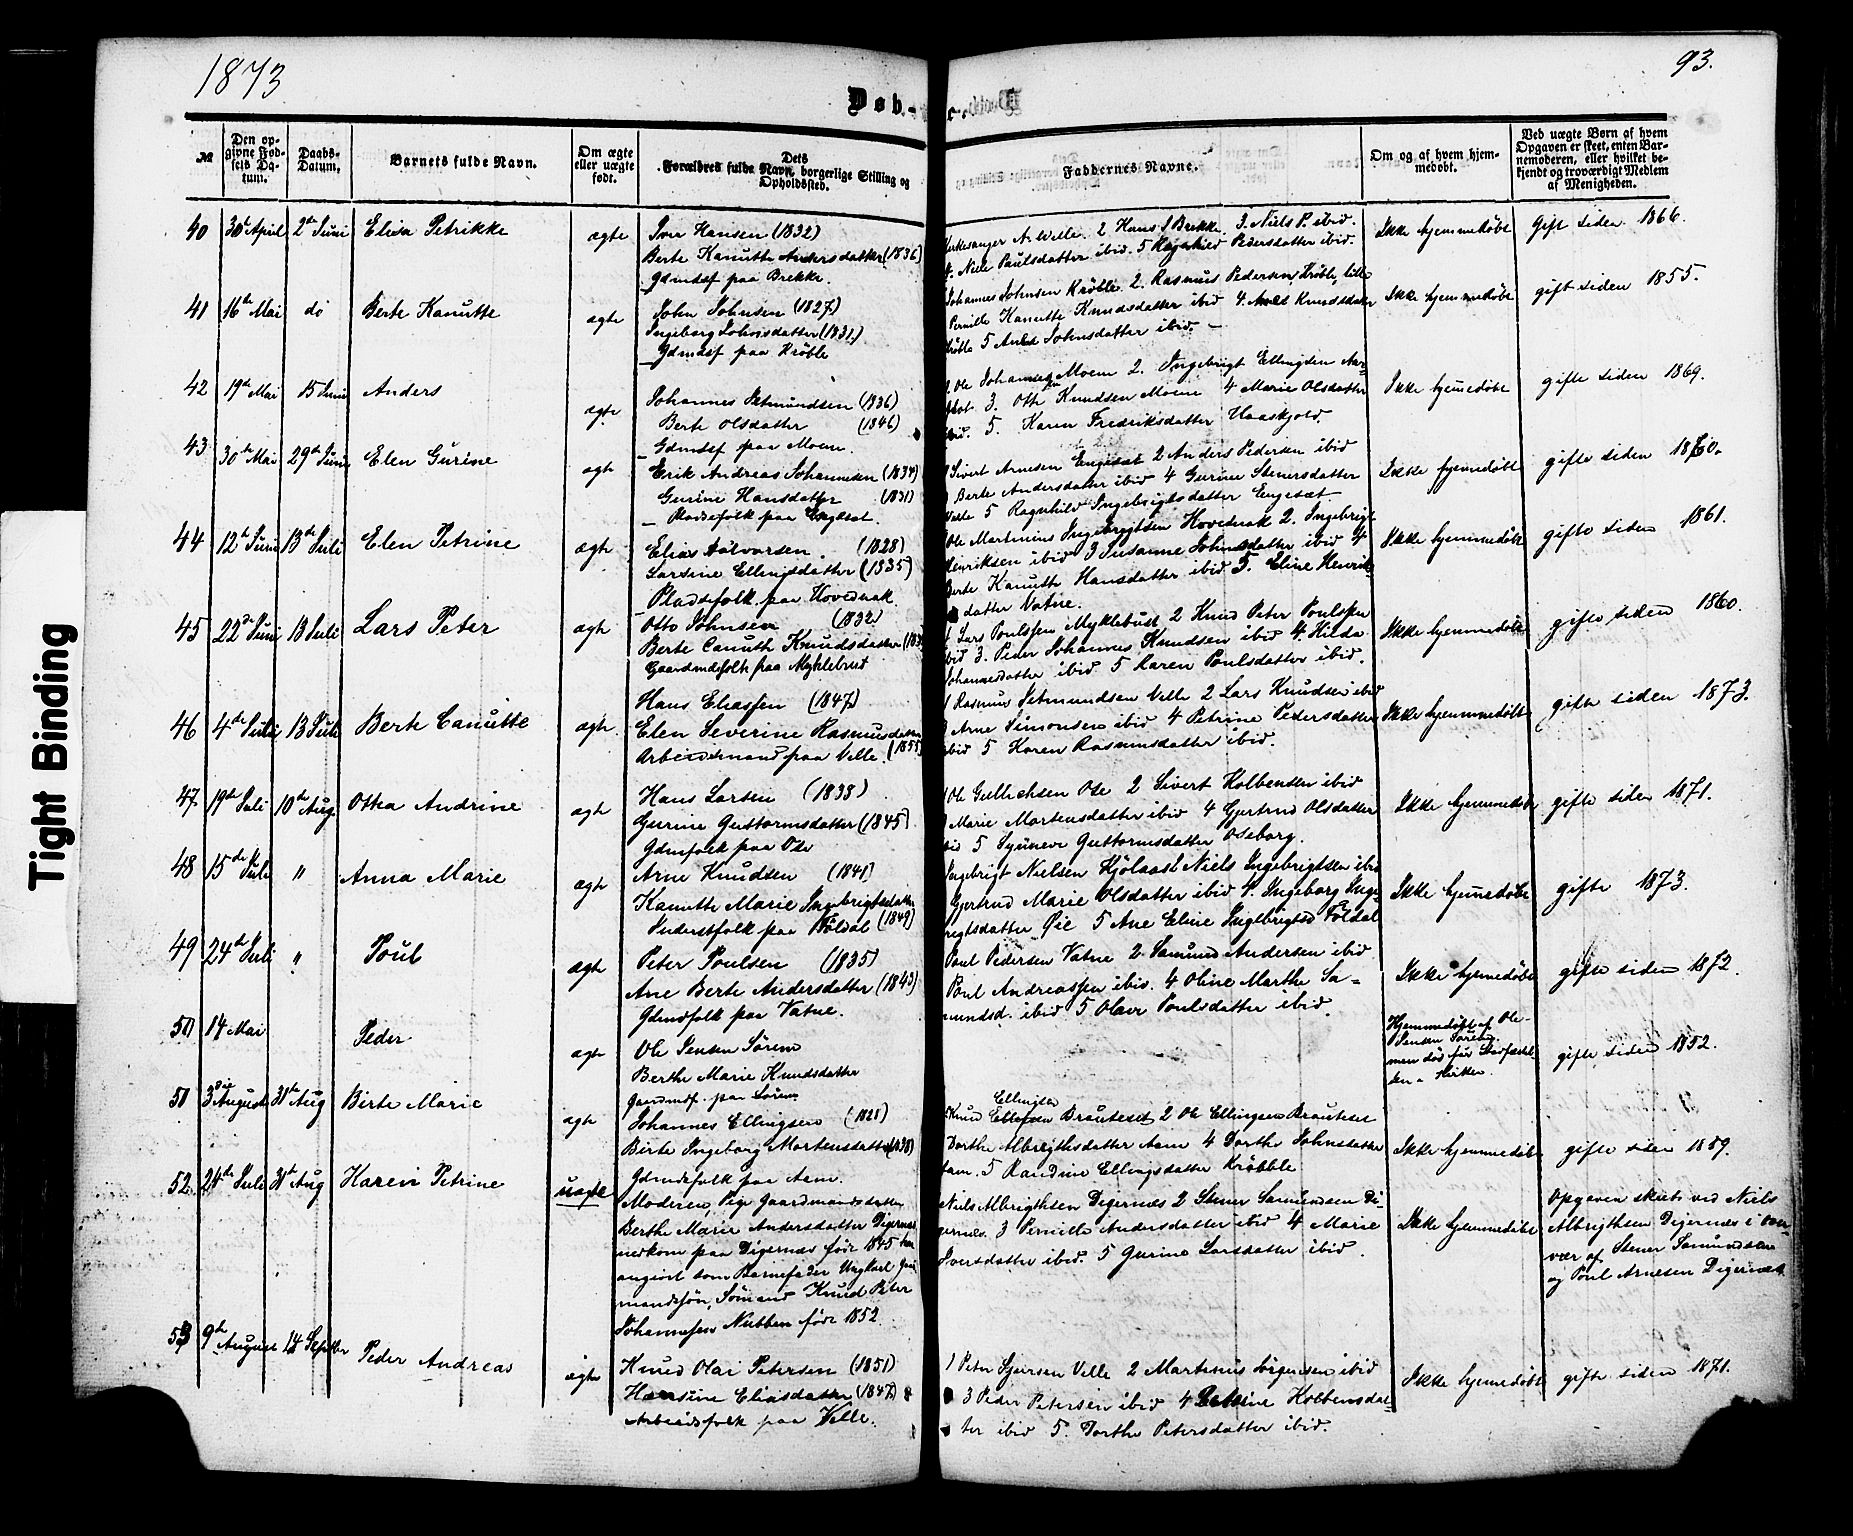 1873
93.
Døb-
Tight Binding
№
Den opgivne Fødsels Datum.
Daabs-Datum.
Barnets fulde Navn.
Om ægte eller uægte født.
Forældres fulde Navn, Dets borgerlige Stilling og Opholdssted.
Faddernes Navne.
Om og af hvem hjemmedøbt.
Ved uægte Børn af hvem Opgaven er skeet, enten Barnemoderen, eller hvilket bekjendt og troværdigt Medlem af Menigheden.
40 30te April 2den Juni Elisa Petrikke ægte
Iver Hansen (1832)
Berte Kanutte Andersdatter (1836)
Gdmdsf paa Brekke.
Kirkesanger A. Velle. 2 Hans J Brekke. 3. Niels P. ibid.
4. Nille Paulsdatter ibid. 5 Ragnhild Pedersdatter ibid.
Ikke hjemmedøbt Gift siden 1866.
41 16te Mai do Berte Kanutte ægte
John Johnsen (1827)
Ingeborg Johnsdatter (1831)
Gdmdsf paa Krøble
Johannes Johnsen Krøble. 2. Rasmus Pedersen Krøble, lille
Pernille Kanutte Knudsdatter ibid 4. Knudsdatter
Krøble 5 Johnsdatter ibid.
Ikke hjemmedøbt gift siden 1855.
42 19de Mai 15 Juni Anders ægte
Johannes Setmundsen (1836)
Berte Olsdatter (1846)
Gdmdsf paa Moen.
Ole Johannes Moen 2. Ingebrigt Ellingsen
3. Otte Knudsen Moen 4 Marie Olsdatter
ibid. 5. Karen Fredriksdatter Haaskjold.
Ikke hjemmedøbt gifte siden 1869.
43 30te Mai 29de Juni Elen Gurine ægt
Erik Andreas Johannesen (1834)
Gurine Hansdatter (1831)
Pladsefolk paa Engeset.
Sivert Arnesen Engesæt 2 Anders Pedersen ibid
Berte Andersdatter ibid 4 Gurine Stenersdatter
Velle 5 Ragnhild Ingebrigtsdatter Engesæt
Ikke hjemmedøbt gifte siden 1860.
44 12te Juni 13de Juli Elen Petrine ægte
Elias Halvorsen. (1828)
Larsine Ellingsdatter (1835)
Pladsefolk paa Hovednak
Ole Martinus Ingebrigtsen Hovednak 2. Ingebrigt
Henriksen ibid 3 Susanne Johnsdatter ibid 4
Berte Kanutte Hansdatter ibid 5. Eline Henriks
datter Vatne.
Ikke hjemmedøbt gifte siden 1861.
45 22de Juni 13 Juli Lars Peter ægte
Otto Johnsen (1832)
Berte Canutte Knudsdatter
Gaardmdsfolk paa Myklebust
Lars Poulssen Myklebust 2 Knud Peter Poulssen
ibid 3. Peder Johannes Knudsen ibid 4. Hilda
Johannesdatter ibid. 5 Karen Poulsdatter ibid.
Ikke hjemmedøbt gifte siden 1860.
46 4de Juli 13 Juli Berte Canutte ægte
Hans Eliassen (1847)
Elen Severine Rasmusdatter
Arbeidsmand paa Velle. (1855)
1 Rasmus Setmundsen Velle 2 Lars Knudsen ibid
3 Arne Simonsen ibid 4 Petrine Pedersdatter
ibid 5 Karen Rasmusdatter ibid.
Ikke hjemmedøbt gifte siden 1873.
47 19de Juli 10de Aug. Otha Andrine ægte
Hans Larsen (1838)
Gurine Guttormsdatter (1845)
Gdmfolk paa Ose
1 Ole Gullichsen Ose 2 Sivert Kolbensen ibid
3 Marie Mortensdatter ibid 4 Gjertrud Olsdatter
5 Synneve Guttormsdatter Oseborg.
Ikke hjemmedøbt gifte siden 1871.
48 15de Juli " Anna Marie ægte
Arne Knudsen (1841)
Kanutte Marie Ingebrigtsdatter
Inderstfolk paa Føldal (1849)
Ingebrigt Nielsen Kjølaas 2 Niels Ingebrigtsen ibid
Gjertrud Marie Olsdatter ibid 4. Ingeborg Inge-
brigtsdatter Øie 5 Ane Eline Ingebrigtsd Følsdal
Ikke hjemmedøbt gifte 1873.
49 24de Juli " Poul ægte
Peter Poulsen (1835)
Ane Berte Andersdatter (1843)
Gdmfolk paa Vatne.
Poul Pedersen Vatne 2 Samund Andersen ibid
Poul Andreassen ibid. 4 Oline Marthe Sa-
mundsd. ibid 5 Olave Poulsdatter ibid.
Ikke hjemmedøbt gifte siden 1872.
50 14 Mai Peder ægte
Ole Jensen Sørem
Berthe Marie Knudsdatter
Gaardmdf. paa Sørem
Hjemmedøbt af Ole
Jensen Sørem
men død før Stadfæstel
sen i Kirken
gifte siden 1852.
51 3die August 31te Aug Birte Marie ægte
Johannes Ellingsen (1828)
Birte Ingeborg Mortensdatter (1838)
Gdmdsfolk paa Aam.
Knud Ellingsen Brauteset 2 Ole Ellingsen Brauteset
Dorthe Albrigthsdatter Aam 4 Dorthe Johnsdatter
Aam. 5 Randine Ellingsdatter Krøbble
Ikke hjemmedøbt gifte siden 1859.
52. 24de Juli 31te Aug Karen Petrine uægte
Moderen, Pige Gaardmandsdatter
Berthe Marie Andersdatter Digernæs
nedkom paa Digernæs født 1845 har
angivet som Barnefader Ungkarl Gaard
mandssøn, Sømand Knud Peter
Johannesen Nubben født 1852
Niels Albrigthsen Digernæs 2 Stener Samundsen Di-
gernæs. 3 Pernille Andersdatter ibid 4 Marie
Iversdatter ibid. 5 Gurine Larsdatter ibid.
Ikke hjemmedøbt
Opgaven skeet ved Niels
Albrigthsen Digernæs i Over
vær af Stener Samundsen
og Poul Arnesen Digernæs
53 9de August 14 Septbr Peder Andreas ægte
Knud Olai Petersen (1851)
Hansine Eliasdatter (1847)
Arbeidsfolk paa Velle.
1 Peter Sjursen Velle 2 Martinus Jørgensen ibid
3 Peder Petersen ibid 4 Kolbensdat-
ter ibid 5. Dorthe Petersdatter ibid.
Ikke hjemmedøbt gifte siden 1871.